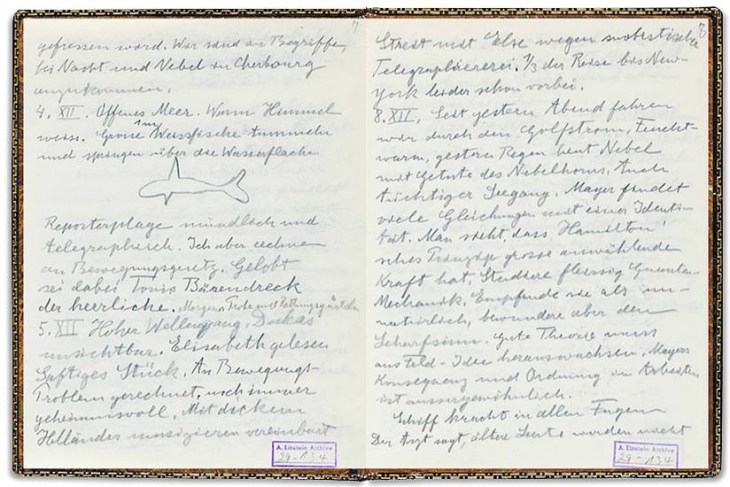 gefressen ward. Wir sind im Begriffe,
bei Nacht und Nebel in Cherbourg
anzukommen.
4. XII. Offenes Meer. Warm Himmel
weiss. Grosse Weissfische tummeln
und springen über die Wasserfläche
Reporterplage mündlich und
telegraphisch. Ich aber rechne
an Bewegungsgesetz. Gelobt
sei dabei Tonis Bärendreck
der herrliche. Morgens Tiere und Rettungsgürteln
5. XII Hoher Wellengang. Dukas
unsichtbar. Elisabeth gelesen
Saftiges Stück. An Bewegungs-
Problem gerechnet, noch immer
geheimnisvoll. Mit dickem
Holländer musizieren vereinbart
A. Einstein Archive
29-134
8
Streit mit Else wegen
Telegraphiererei. 1/3 der Reise bis New-
york leider schon vorbei.
8. XII. Seit gestern Abend fahren
wir durch den Golfstrom, Feucht-
warm, gestern Regen heut Nebel
mit Getute des Nebelhorns. Auch
tüchtiger Seegang. Mayer findet
viele Gleichungen mit einer Identi-
tät. Man sieht, dass Hamilton'
sches Prinzip grosse auswählende
Kraft hat. Studiere fleissig Quanten-
Mechanik. Empfinde sie als un-
natürlich, bewundere aber den
Scharfsinn. Gute Theorie muss
aus Feld-Idee herauswachsen. Mayers
Konsequenz und Ordnung im Arbeiten
ist aussergewöhnlich.
Schiff kracht in allen Fugen
Der Arzt sagt, ältere Leute werden nicht
A. Einstein Archive
29-134